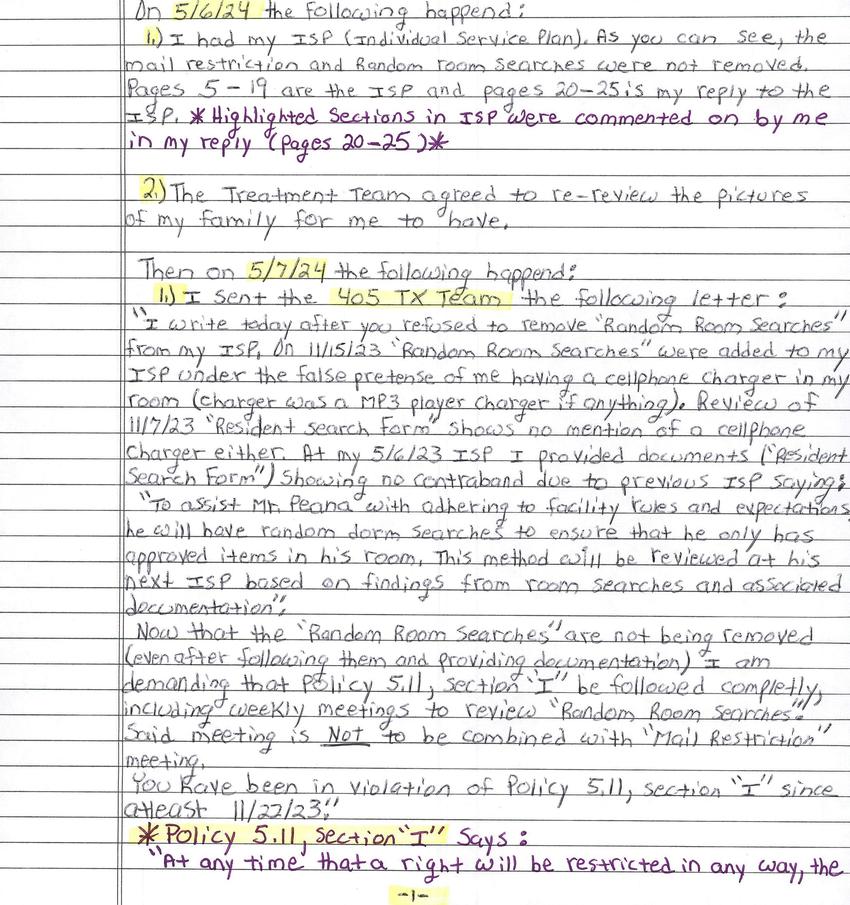 On 5/6/24 the following happend:
1.) I had my ISP (Individual Service Plan). As you can see, the
mail restriction and Random room searches were not removed.
Pages 5-19 are the ISP and pages 20-25 is my reply to the
ISP. *Highlighted Sections in ISP were commented on by me
in my reply (pages 20-25)*
2.) The Treatment Team agreed to re-review the pictures
of my family for me to have.
Then on 5/7/24 the following happend:
1.) I sent the 405 TX Team the following letter:
"I write today after you refused to remove "Random Room Searches"
from my ISP. On 11/15/23 "Random Room Searches" were added to my
ISP under the false pretense of me having a cellphone charger in my
room (charger was a MP3 player charger if anything). Review of
11/7/23 "Resident search form" shows no mention of a cellphone
charger either. At my 5/6/23 ISP I provided documents ("Resident
Search Form") showing no contraband due to previous ISP saying:
"To assist Mr. Peana with adhering to facility rules and expectations,
he will have random dorm searches to ensure that he only has
approved items in his room. This method will be reviewed at his
next ISP based on findings from room searches and associated
documentation".
Now that the "Random Room Searches" are not being removed
(even after following them and providing documentation) I am
demanding that Policy 5.11, section "I" be followed completly,
including weekly meetings to review "Random Room Searches".
Said meeting is Not to be combined with "Mail Restriction"
meeting.
You have been in violation of Policy 5.11, section "I" since
atleast 11/22/23."
*Policy 5.11, section "I" Says:
"At any time that a right will be restricted in any way, the
-1-